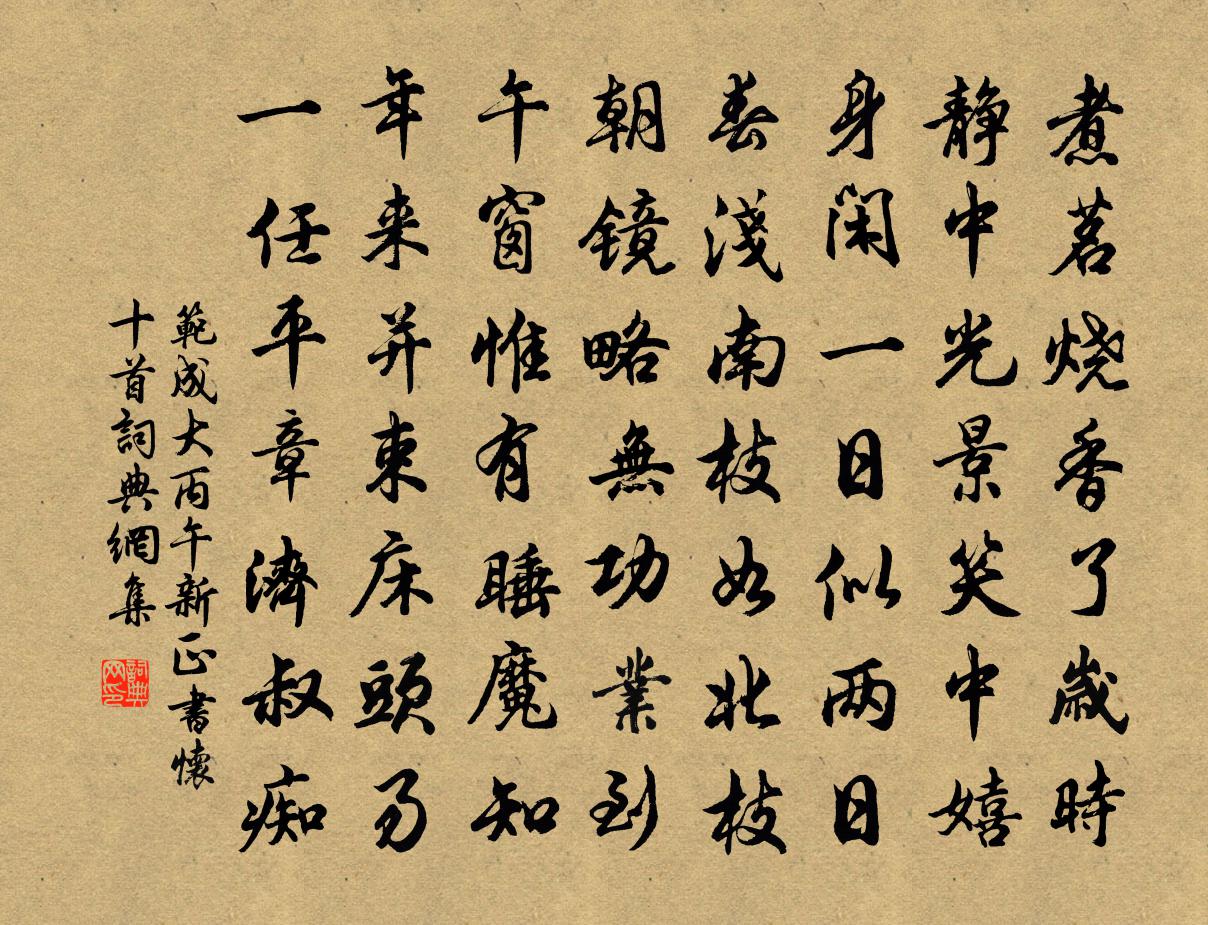 煮茗烧香了歲時
静中光景笑中嬉
身閑一日似两日
春淺南枝如北枝
朝镜略無功業到
午窗惟有睡魔知
年来并束床頭易
一任平章濟叔痴
範成大丙午新正書懷
十首詞典網集
詞典网印